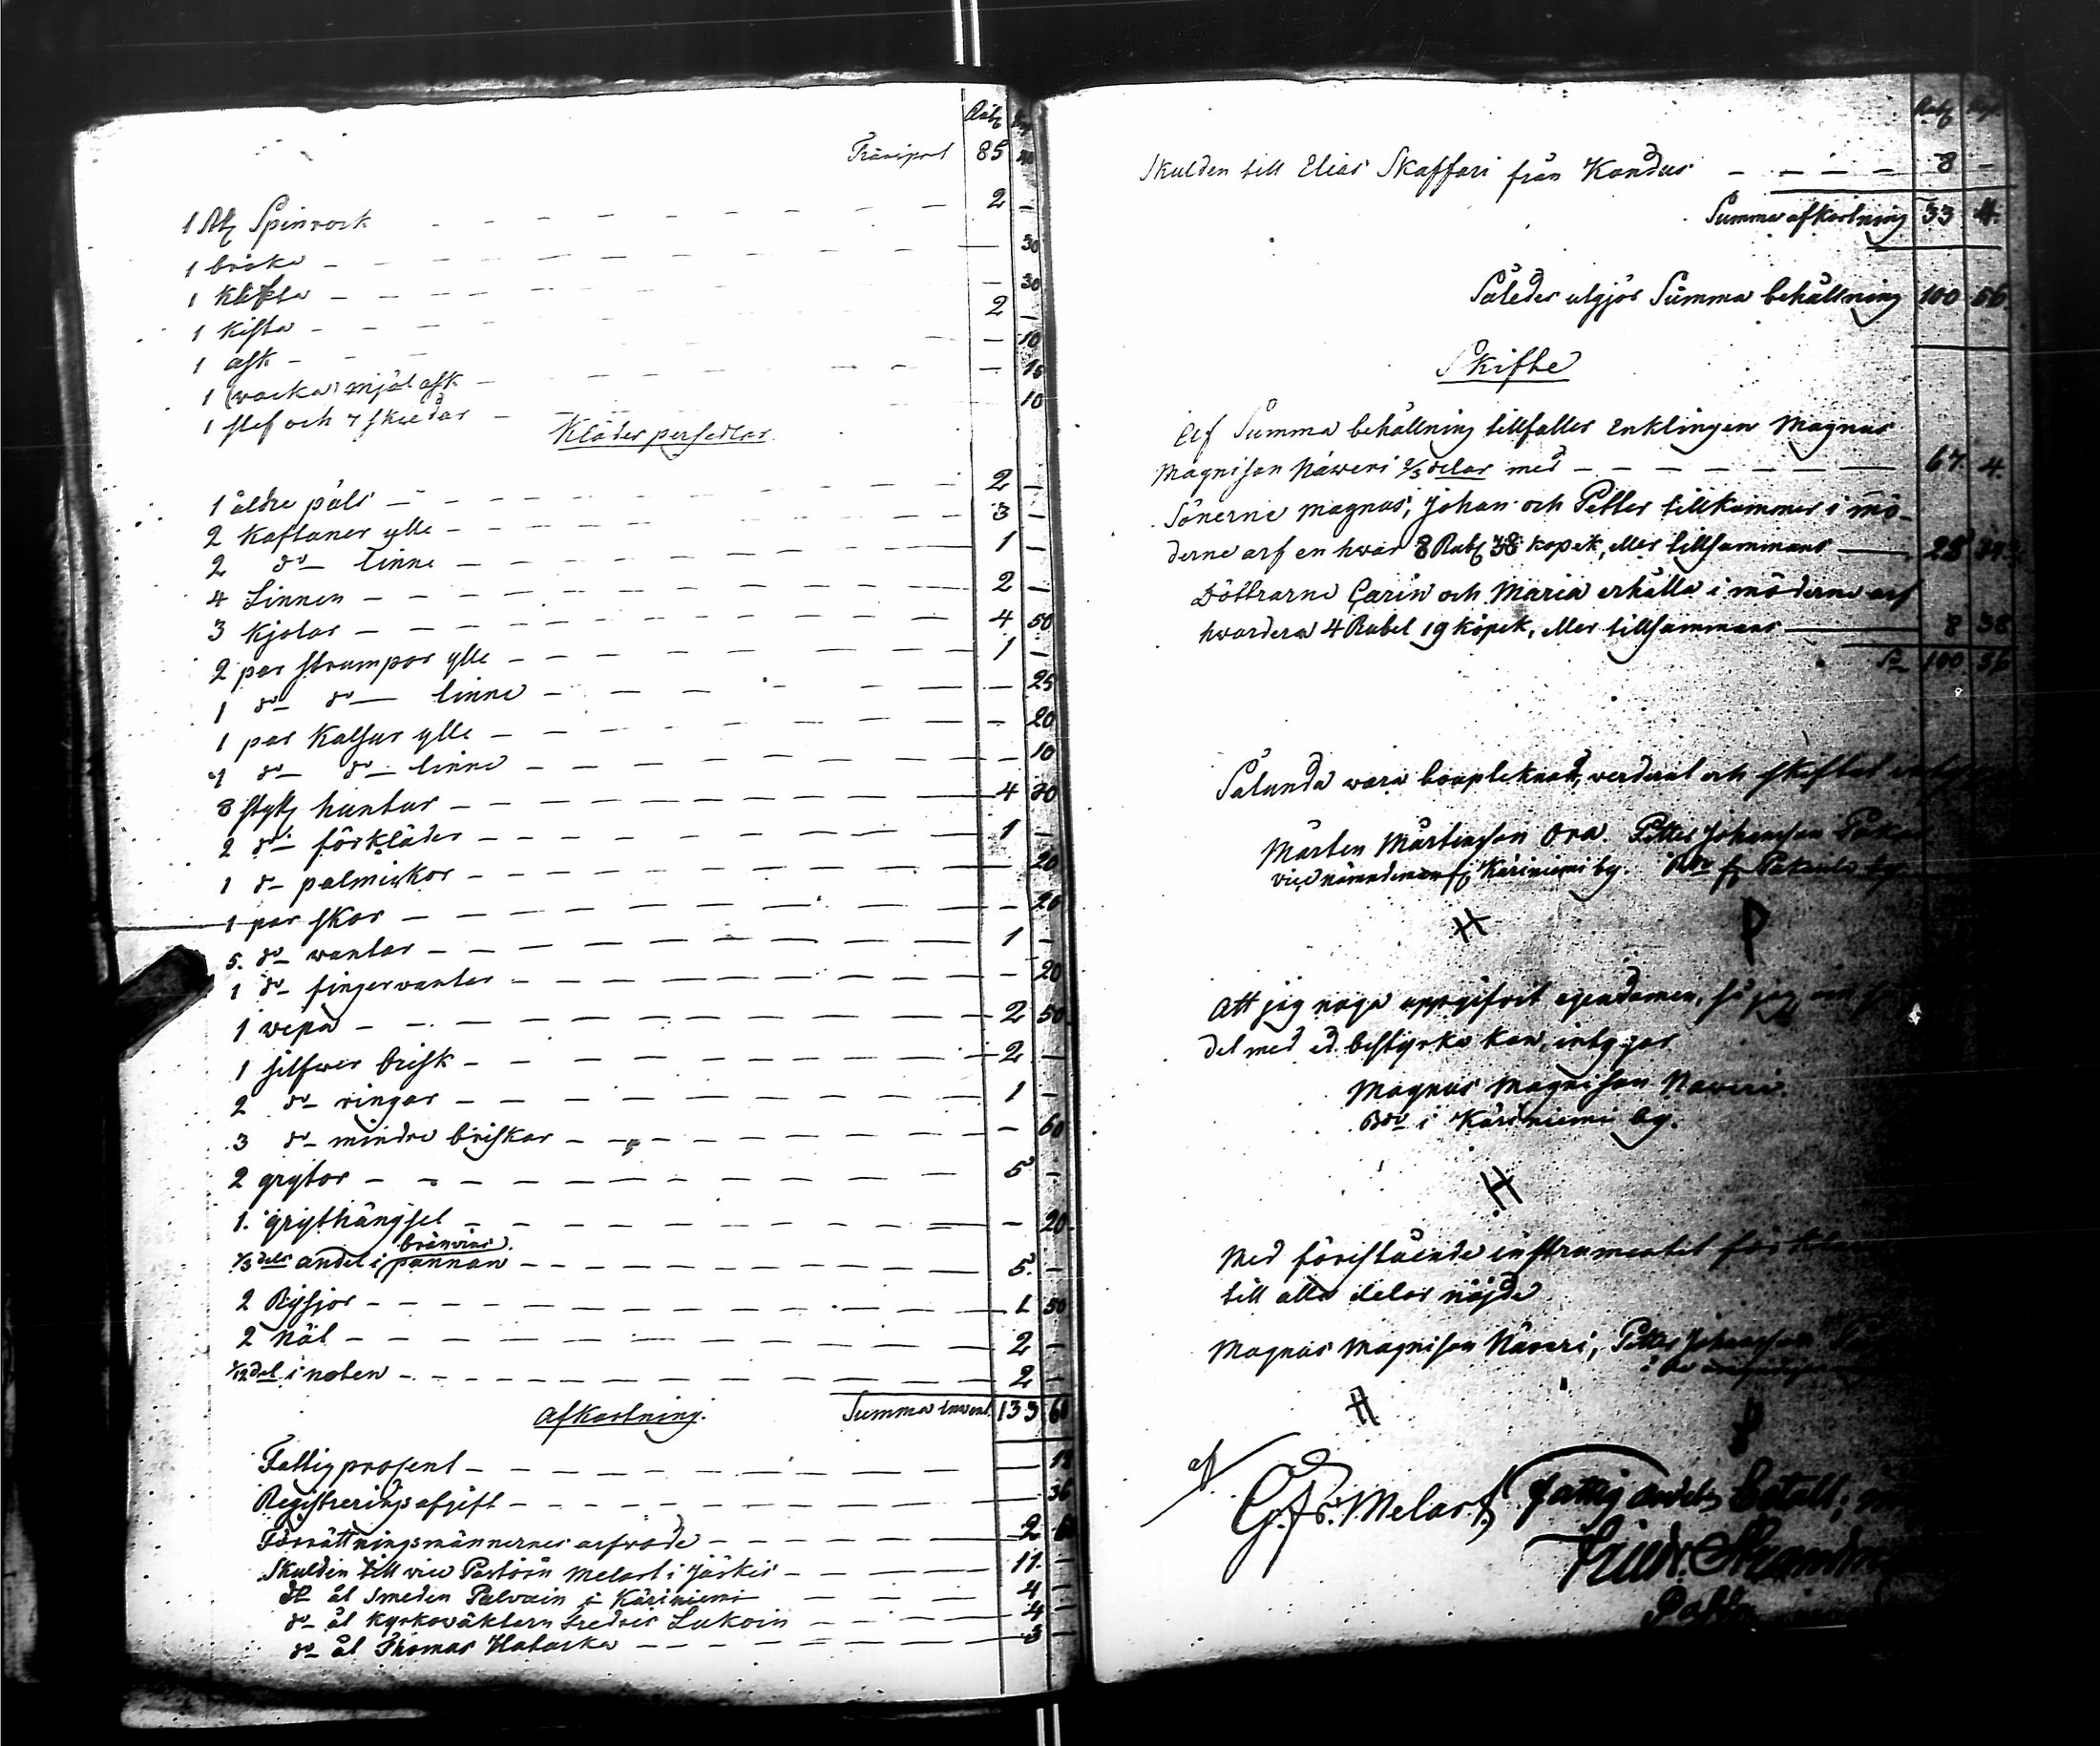 Rub. Kop.
Transport 85 40
1 st. Spinrock — 2 —
1 bricka — — 30
1 klifta — — 30
1 kista — 2 —
1 ask — — 10
1 (vacka) mjöl ask — — 15
1 slef och 7 skedar — — 10
Kläder persedlar.
1 äldre päls — 2 —
2 Kaftaner ylle — 3 —
2 do linne — 1 —
4 Linnen — 2 —
3 Kjolar — 4 50
2 par strumpor ylle — 1 —
1 do do linne — — 25
1 par Kalsur ylle — — 20
1 do do linne — — 10
8 styck huntur — 4 20
2 do förkläder — 1 —
1 do palmiskor — — 20
1 par skor — — 20
5. do wantar — 1 —
1 do fingerwantar — — 20
1 wepa — 2 50
1 silfwer brisk — 2 —
2 do ringar — 1 —
3 do mindre briskar — — 60
2 grytor — 5 —
1. grythängsel — — 20
bränvins
1/3 dels andel i pannan — 5. —
2 Rysjor — 1 50
2 Nät — 2 —
1/12 del i noten — 2 —
Afkortning. Summa invent. 133 60
Fattigprosent — — 18
Registreringsafgift — — 36
Förrättningsmännernes arfvode — 2
Skulden till vice Pastorn Melart i Jäskis — 11. —
do åt Smeden Palvain i Käriniemi — 4 —
do åt Kyrkoväktarn Fredric Lukoin — 4 —
do åt Thomas Hatacka — 3 —
Rub. Kop.
Skulden till Elias Skaffari från Kondus — 8 —
Summa afkortning 33 4.
Således utgjör Summa behållning 100 56
Skifte
Af Summa behållning tillfaller Enklingen Magnus
Magnisson Näweri 2/3 delar med — 67. 4.
Sönerne Magnus, Johan och Petter tillkommer i mö-
derne arf en hwar 8 Rub. 38 kopek, eller tillsammans — 25
Döttrarne Carin och Maria erhålla i möderne arf
hwardera 4 Rubel 19 kopek, eller tillsammans — 8 38
Sa 100 56
Sålunda vara bouptecknad, verderat och skiftat
Mårten Mårtensson Ora. Petter Johansson
vice nämndeman fr. Käriniemi by. Bde fr. by
H P
Att jag noga uppgifvit egendomen, så jag, om så
det med ed bestyrka kan, intygar
Magnus Magnisson Naweri.
Bde i Käriniemi by.
H
Med föreståënde instrumentet
till alla delar nöjde
Magnus Magnisson Näveri, Petter Johansson
H P
G. Fr. Melart. fattig andels betalt;
Friedr.
Past